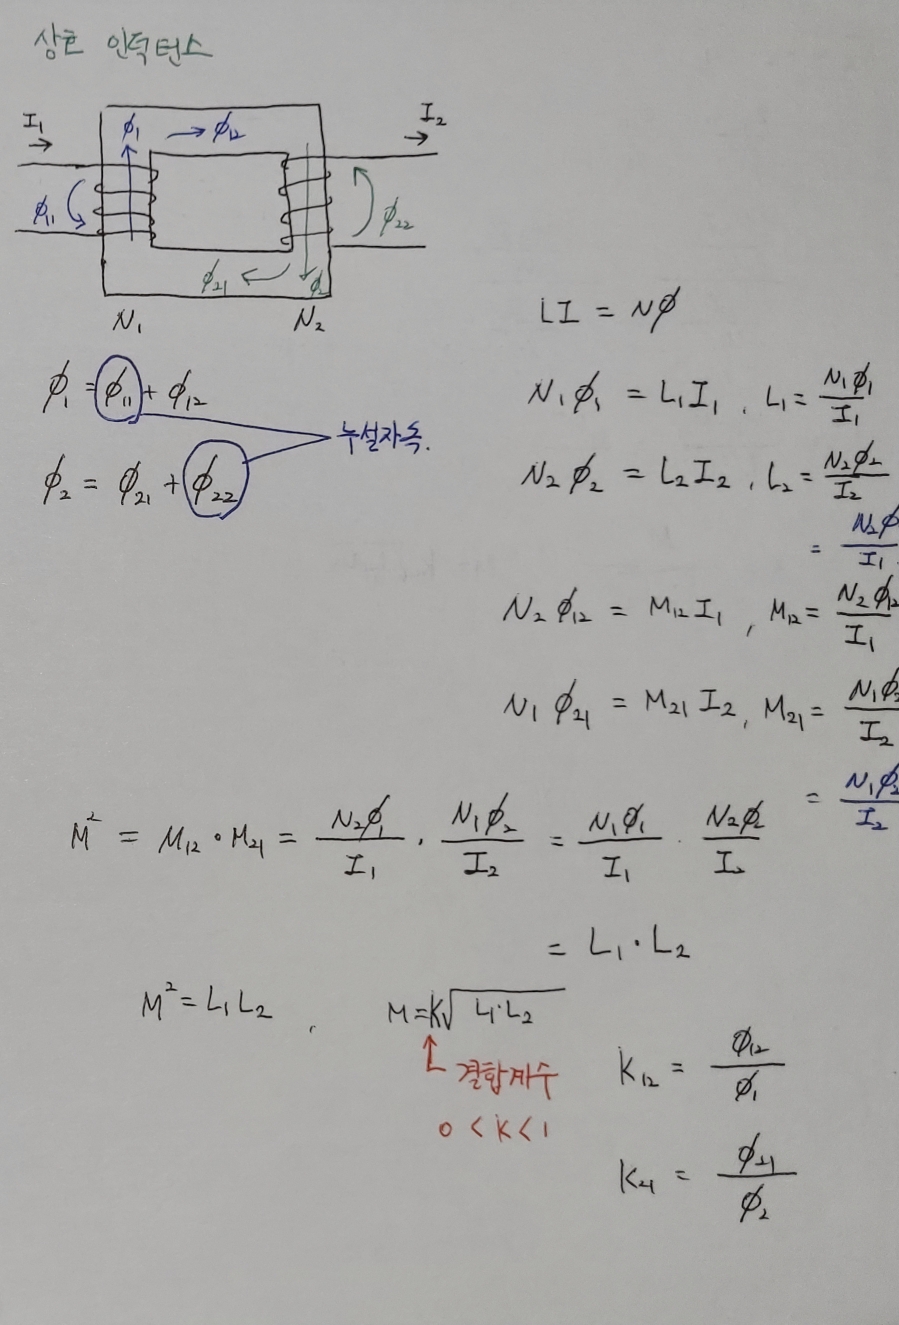 상호 인덕턴스
I₁ ϕ₁ → ϕ₁₂ I₂
ϕ₁₁ ϕ₂₂
ϕ₂₁ ϕ₂
N₁ N₂
LI = Nϕ
ϕ₁ = ϕ₁₁ + ϕ₁₂
누설자속.
ϕ₂ = ϕ₂₁ + ϕ₂₂
N₁ϕ₁ = L₁I₁ , L₁ = N₁ϕ₁/I₁
N₂ϕ₂ = L₂I₂ , L₂ = N₂ϕ₂/I₂
= N₂ϕ/I₁
N₂ϕ₁₂ = M₁₂I₁ , M₁₂ = N₂ϕ₁₂/I₁
N₁ϕ₂₁ = M₂₁I₂ , M₂₁ = N₁ϕ₂/I₂
= N₁ϕ₂/I₂
M² = M₁₂・M₂₁ = N₂ϕ₁/I₁ · N₁ϕ₂/I₂ = N₁ϕ₁/I₁ · N₂ϕ₂/I₂
= L₁・L₂
M² = L₁L₂ , M = K√L₁·L₂
결합계수
0 < K < 1
K₁₂ = ϕ₁₂/ϕ₁
K₂₁ = ϕ₂₁/ϕ₂